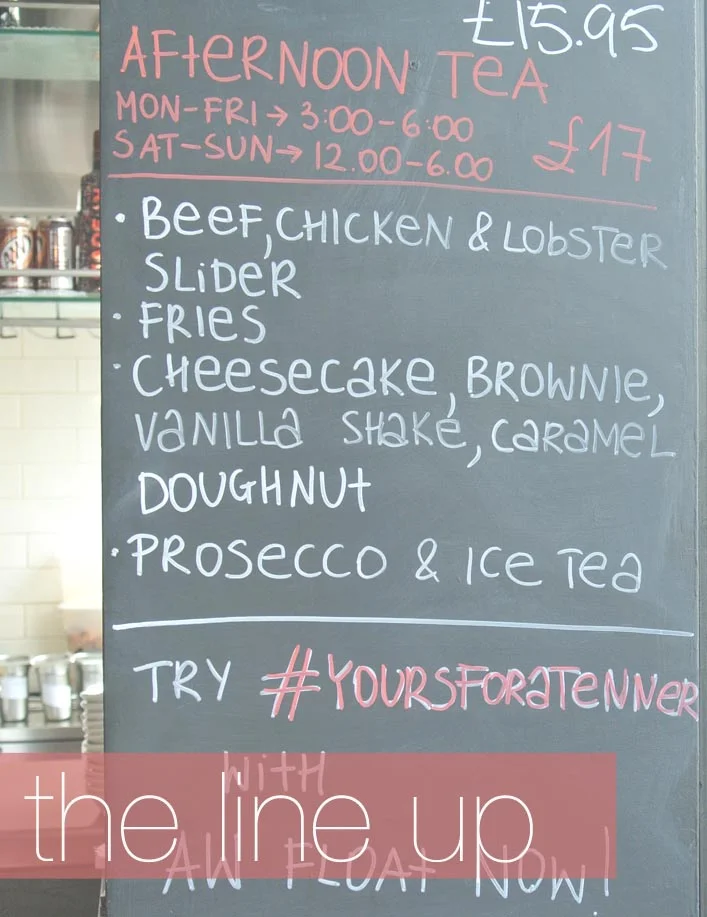 £15.95
AFTERNOON TEA
MON-FRI → 3:00-6:00
SAT-SUN → 12.00-6.00 £17
• BEEF, CHICKEN & LOBSTER
SLIDER
• FRIES
• CHEESECAKE, BROWNIE,
VANILLA SHAKE, CARAMEL
DOUGHNUT
• PROSECCO & ICE TEA
TRY #YOURSFORATENNER
WITH
the line up
AW FLOAT NOW!